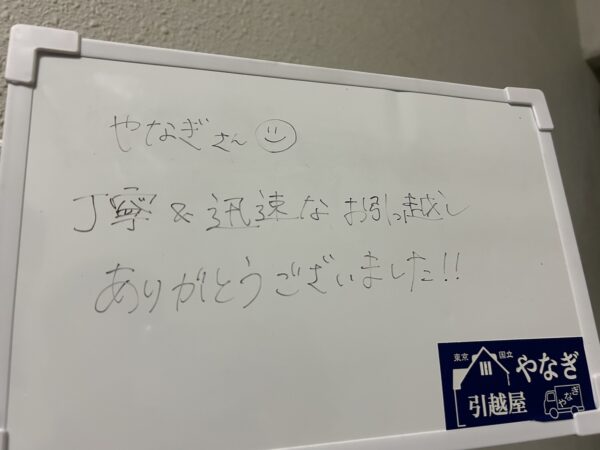 やなぎさん
丁寧&迅速なお引っ越し
ありがとうございました!!
東京 国立 やなぎ
引越屋
やなぎ